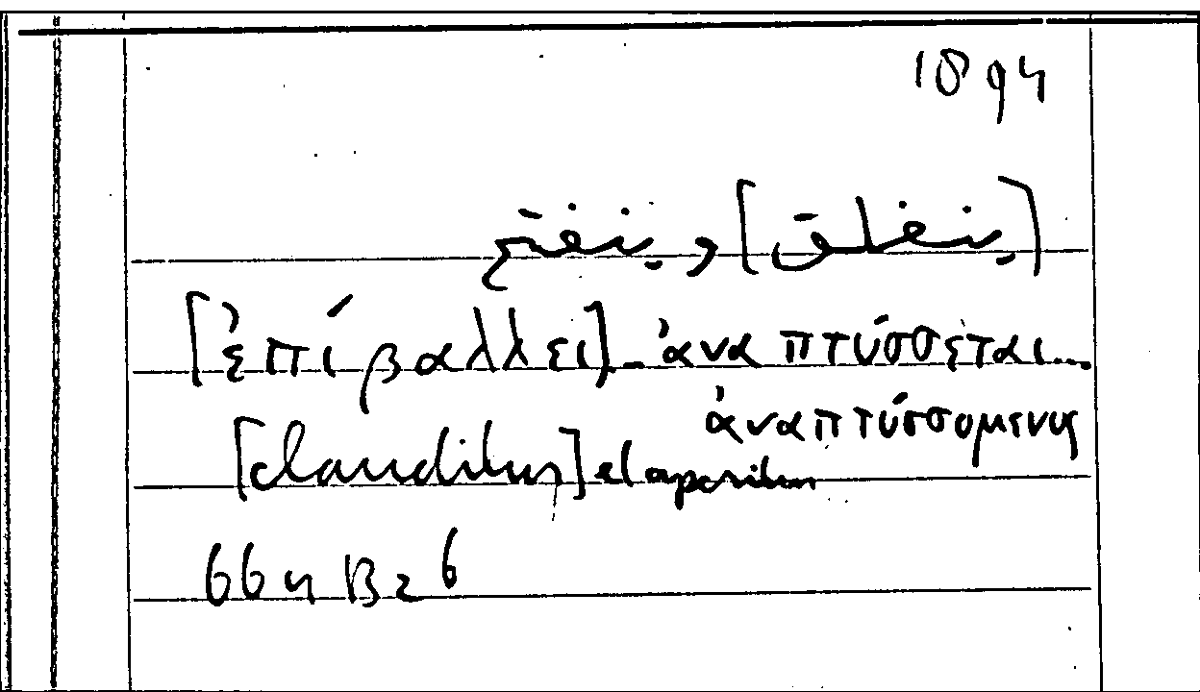 1894
[ينغلق] وينفتح
[ἐπιβάλλει] - ἀναπτύσσεται...
ἀναπτύσσομενος
[clauditur] et aperitur
664 B26